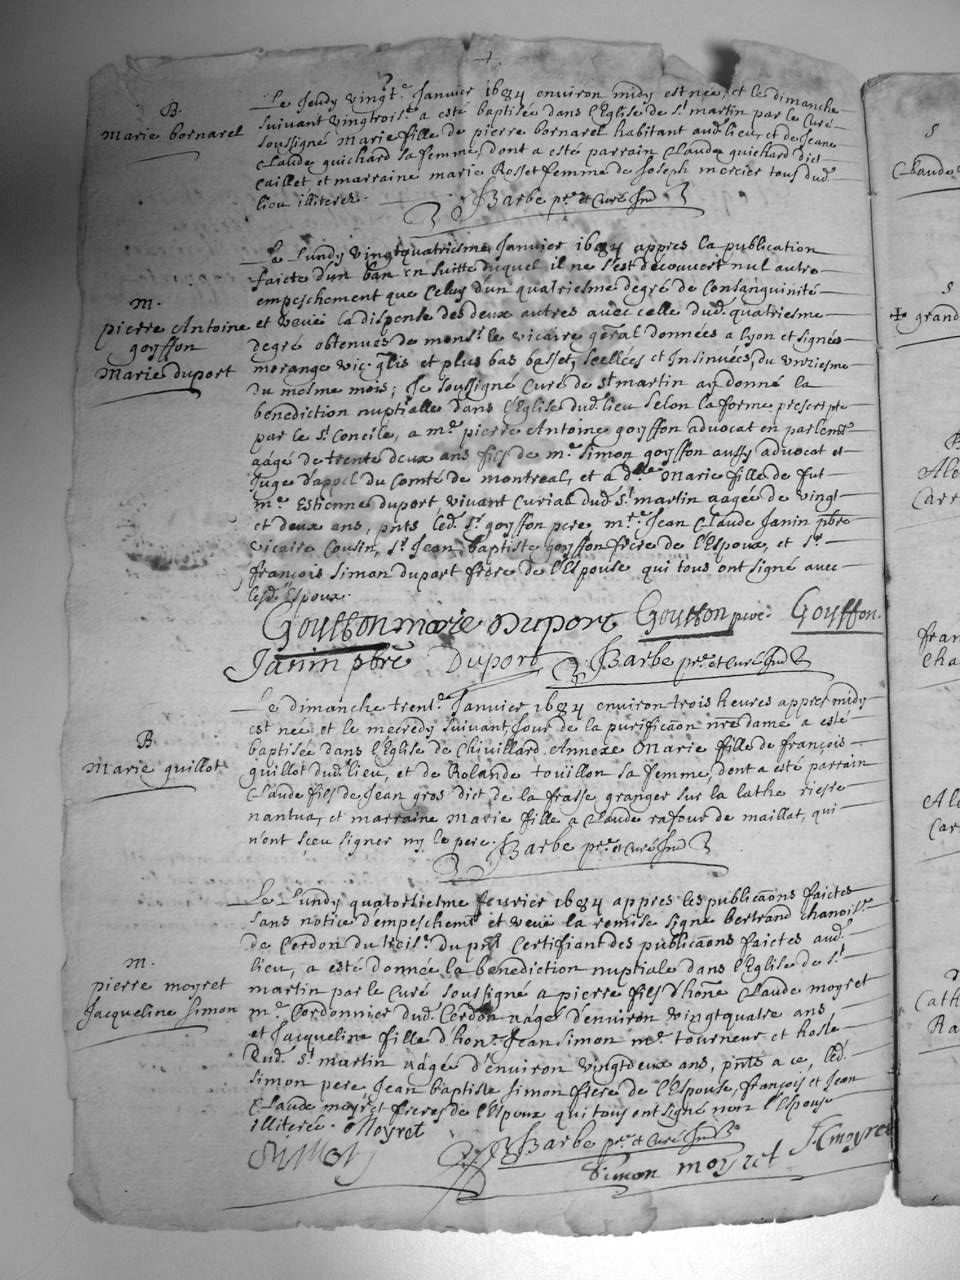 B.
Marie bornarel
Le Jeudy vingt.e Janvier 1684 environ midy est née, et le dimanche
suivant vingtrois.e a esté baptisée dans l'Eglise de St martin par le Curé
soussigné Marie fille de pierre bornarel habitant aud. lieu, et de Jeane
Claude guichard sa femme, dont a esté parrain Claude guichard dict
caillet et marraine marie Rosset femme de Joseph mercier tous dud.
lieu illiterez.
Barbe p.re et Curé Ind
M.
pierre Antoine
goyffon
Marie duport
Le Lundy vingtquatriesme Janvier 1684 appres la publication
faicte d'un ban en suitte duquel il ne s'est découvert nul autre
empeschement que celuy d'un quatriesme degré de consanguinité
et veüe la dispense des deux autres avec celle dud. quatriesme
degré obtenues de mons.r le vicaire gnãl données a lyon et signées
morange vic. glis et plus bas basset, scellées et insinuées, du unziesme
du mesme mois; Je soussigné Curé de st martin ay donné la
benediction nuptialle dans l'Eglise dud. lieu selon la forme prescripte
par le St Concile, a m.e pierre Antoine goyffon advocat en parlemt
aagé de trente deux ans fils de m.e simon goyffon aussy advocat et
Juge d'appel du Comté de montreal, et a d.lle Marie fille de fut
m.e Estienne duport vivant Curial dud. St martin aagée de vingt
et deux ans, pnts led. Sr goyffon pere m.re Jean Claude Janin pbre
vicaire cousin, Sr Jean baptiste goyffon frere de l'Espoux, et Sr
françois simon duport frere de l'Espouse qui tous ont signé avec
lesd. Espoux.
Goyffon marie Duport Goyffon pere. Goyffon.
Janin pbre Duport Barbe p.re et Curé Ind
B
Marie guillot
Le dimanche trent.e Janvier 1684 environ trois heures appres midy
est née et le mecredy suivant Jour de la purificaõn nre dame a esté
baptisée dans l'Eglise de Chivillard Annexe Marie fille de françois
guillot dud. lieu, et de Rolande toüillon sa femme, dont a esté parrain
Claude fils de Jean gros dict de la frasse granger sur la lathe riere
nantua, et marraine Marie fille a Claude rafour de maillat, qui
n'ont sçeu signer ny le pere. Barbe p.re et Curé Ind
M.
pierre moyret
Jacqueline simon
Le Lundy quatorziesme fevrier 1684 appres les publicaõns faictes
sans notice d'empeschemt et veüe la remise signé bertrand chanoi
de Cerdon du trois.e du pnt certifiant des publicaõns faictes aud.
lieu, a esté donnée la benediction nuptiale dans l'Eglise de St
martin par le Curé soussigné a pierre fils d'hoñe Claude moyret
m.e Cordonnier dud. Cerdon aagé d'environ vingtquatre ans
et Jacqueline fille d'hon.e Jean simon m.e tourneur et hoste
dud. St martin aagée d'environ vingtdeux ans, pnts a ce, led.
simon pere, Jean baptiste simon frere de l'Espouse, françois et Jean
Claude moyret freres de l'Espoux qui tous ont signé non l'Espouse
illiterée. Moyret
Barbe p.re et Curé Ind
Simon moyret J C moyret
S
Claude
S
grand
Ale
Carr
fran
Cha
Ale
Car
Cath
Ra